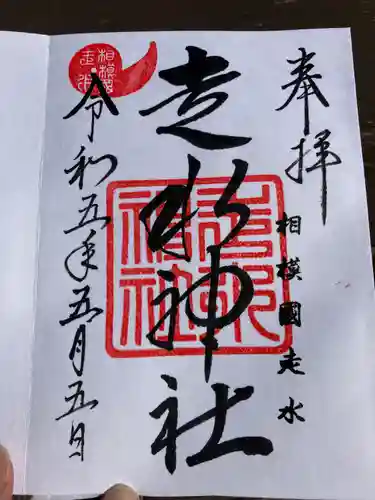 奉拝
相模國走水
走水神社
令和五年五月五日
相模國
走水
走水神社